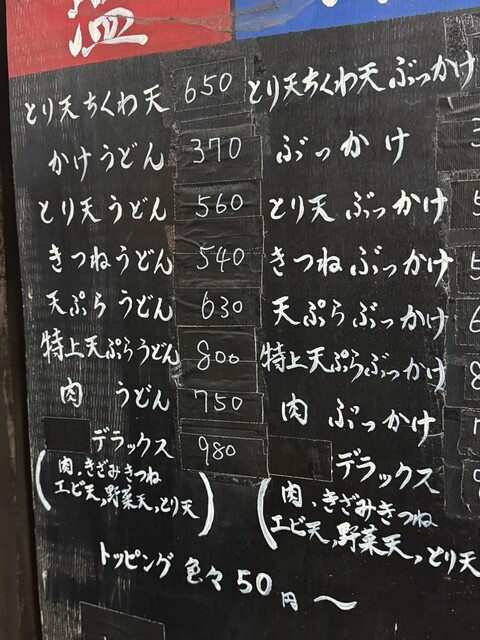 温
とり天ちくわ天 650
かけうどん 370
とり天うどん 560
きつねうどん 540
天ぷらうどん 630
特上天ぷらうどん 800
肉 うどん 750
デラックス 980
(肉、きざみきつね
エビ天、野菜天、とり天)
とり天ちくわ天ぶっかけ
ぶっかけ
とり天 ぶっかけ
きつねぶっかけ
天ぷらぶっかけ
特上天ぷらぶっかけ
肉 ぶっかけ
デラックス
(肉、きざみきつね
エビ天、野菜天、とり天
トッピング 色々50円〜